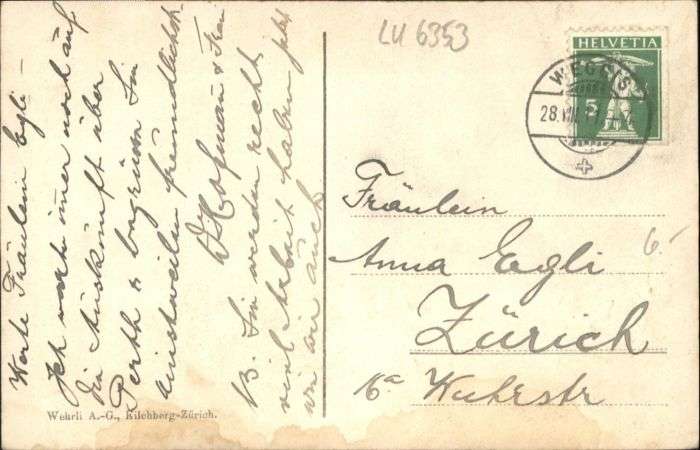 Werte Fräulein Egli –
Ich warte imer noch auf
die Auskunft über
Perth & begrüsse Sie
einstweilen freundlichst
Hofmann & Frau
NB. Sie werden recht
viel Arbeit haben jetzt
wie wir auch
Wehrli A.-G., Kilchberg-Zürich.
LU 6353
HELVETIA
5
WEGGIS
28. VIII.
Fräulein
Anna Egli
Zürich
6a Wuhrstr
6.-